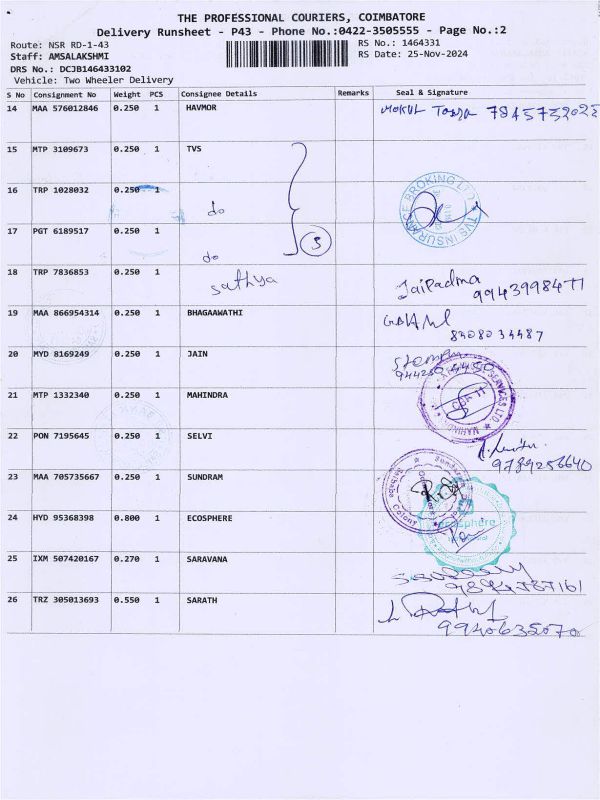 THE PROFESSIONAL COURIERS, COIMBATORE
Delivery Runsheet - P43 - Phone No.:0422-3505555 - Page No.:2
Route: NSR RD-1-43 RS No.: 1464331
Staff: AMSALAKSHMI RS Date: 25-Nov-2024
DRS No.: DCJB146433102
Vehicle: Two Wheeler Delivery
S No Consignment No Weight PCS Consignee Details Remarks Seal & Signature
14 MAA 576012846 0.250 1 HAVMOR
15 MTP 3109673 0.250 1 TVS
16 TRP 1028032 0.250 1
do
TVS INSURANCE BROKING LTD
17 PGT 6189517 0.250 1
3
do
18 TRP 7836853 0.250 1 sathya Jaipadma
9943998477
19 MAA 866954314 0.250 1 BHAGAAWATHI
8308034487
20 MYD 8169249 0.250 1 JAIN
21 MTP 1332340 0.250 1 MAHINDRA
22 PON 7195645 0.250 1 SELVI
9789256640
23 MAA 705735667 0.250 1 SUNDRAM
Saibaba Colony
24 HYD 95368398 0.800 1 ECOSPHERE ecosphere
25 IXM 507420167 0.270 1 SARAVANA
26 TRZ 305013693 0.550 1 SARATH
9940635070